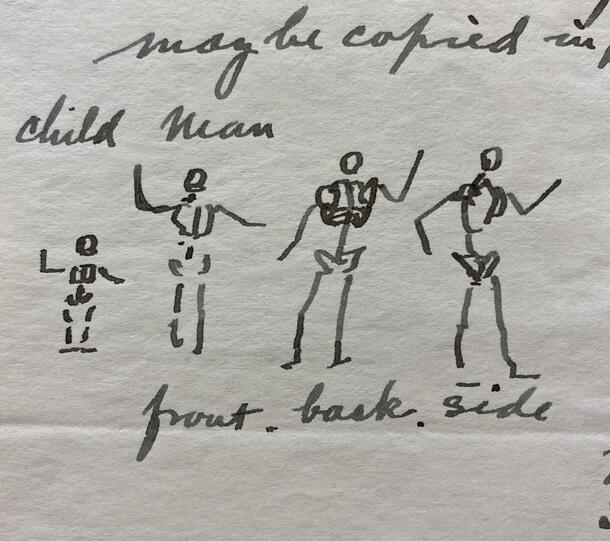 may be copied in
child man
front. back. side